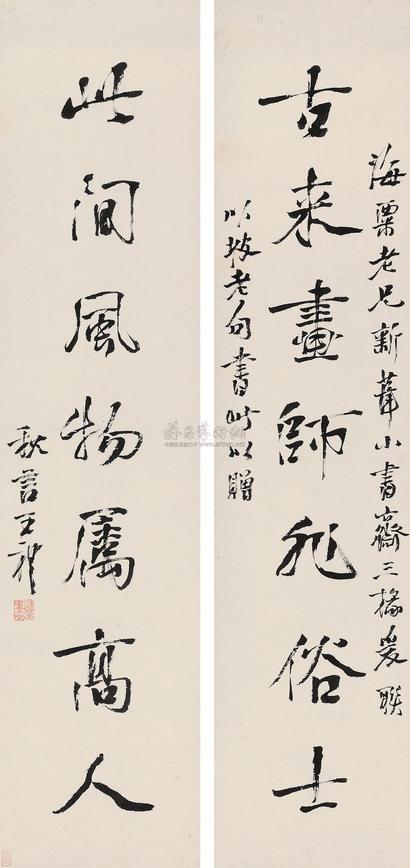 古来畫師非俗士
海粟老兄新葺小書齋三楹爰聯
以坡老句書此以贈
此間風物屬高人
秋言王禕